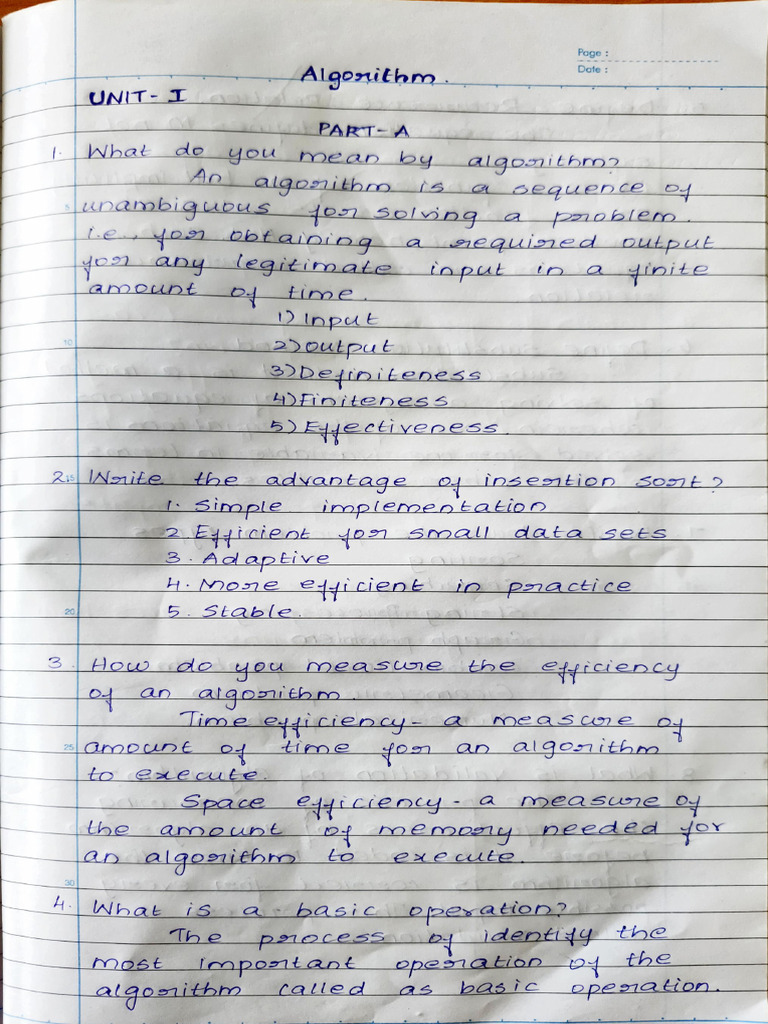 Page :
Date :
Algorithm.
UNIT - I
PART - A
1. What do you mean by algorithm?
An algorithm is a sequence of
5 unambiguous for solving a problem.
i.e., for obtaining a required output
for any legitimate input in a finite
amount of time.
1) Input
10 2) Output
3) Definiteness
4) Finiteness
5) Effectiveness.
2. 15 Write the advantage of insertion sort?
1. Simple implementation
2. Efficient for small data sets
3. Adaptive
4. More efficient in practice
20 5. Stable.
3. How do you measure the efficiency
of an algorithm.
Time efficiency - a measure of
25 amount of time for an algorithm
to execute.
Space efficiency - a measure of
the amount of memory needed for
an algorithm to execute.
30
4. What is a basic operation?
The process of identify the
most important operation of the
algorithm called as basic operation.